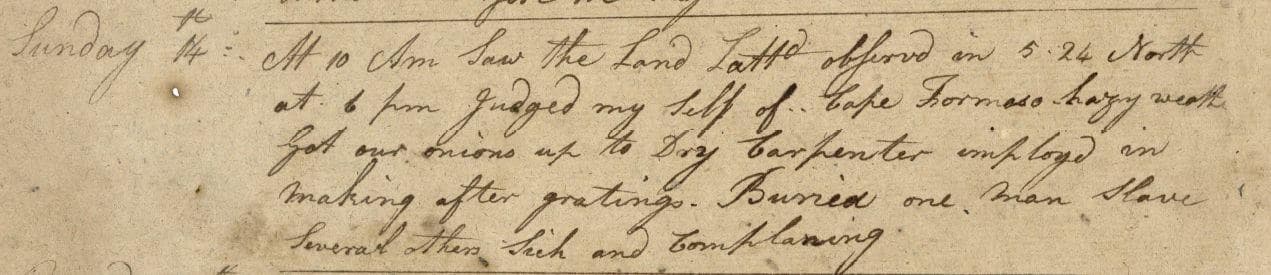 Sunday 14th At 10 Am Saw the Land Lattd observd in 5·24 North
at 6 pm Judged my Self of.. Cape Formoso hazy weath
Got our onions up to Dry Carpenter imployd in
making after gratings. Buried one man Slave
Several others Sick and Complaning